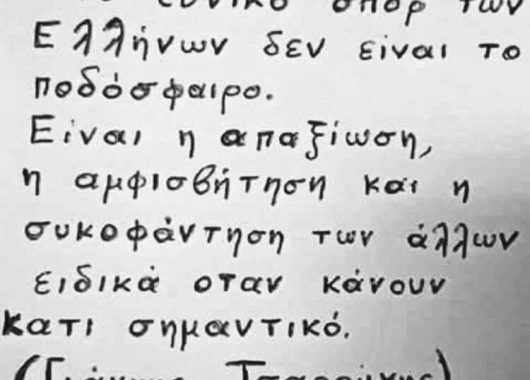 το εθνικό σπορ των
Ελλήνων δεν είναι το
ποδόσφαιρο.
Είναι η απαξίωση,
η αμφισβήτηση και η
συκοφάντηση των άλλων
ειδικά οταν κάνουν
κατι σημαντικό.
(Γιάννης Τσαρούχης)